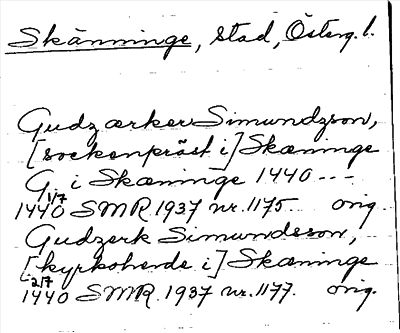 Skänninge, stad, Österg. l.
Gudzærker Simundzson,
[sockenpräst i] Skæninge
G. i Skæninge 1440 ...-
1/7
1440 SMR 1937 nr. 1175. orig.
Gudzerk Simundsson,
[kyrkoherde i] Skæninge
2/7
1440 SMR 1937 nr. 1177. orig.